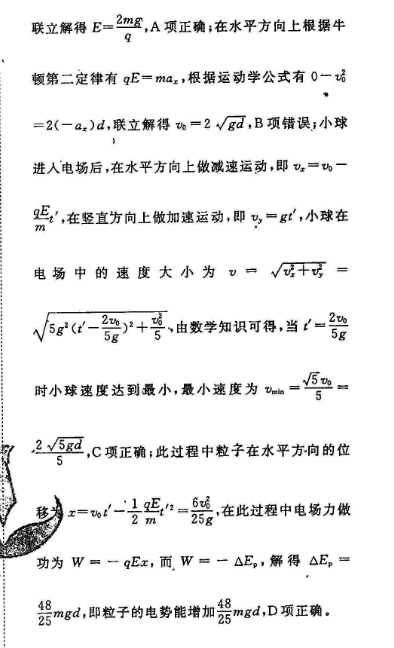 联立解得 E=2mg/q,A 项正确;在水平方向上根据牛
顿第二定律有 qE=maₓ,根据运动学公式有 0-v₀²
=2(-aₓ)d,联立解得 v₀=2√gd,B 项错误;小球
进入电场后,在水平方向上做减速运动,即 vₓ=v₀-
qE/m t′,在竖直方向上做加速运动,即 v_y=gt′,小球在
电场中的速度大小为 v=√(vₓ²+v_y²)=
√(5g²(t′-2v₀/5g)²+v₀²/5),由数学知识可得,当 t′=2v₀/5g
时小球速度达到最小,最小速度为 v_min=√5v₀/5=
2√5gd/5,C 项正确;此过程中粒子在水平方向的位
移为 x=v₀t′-1/2 qE/m t′²=6v₀²/25g,在此过程中电场力做
功为 W=-qEx,而 W=-ΔEₚ,解得 ΔEₚ=
48/25 mgd,即粒子的电势能增加 48/25 mgd,D 项正确。